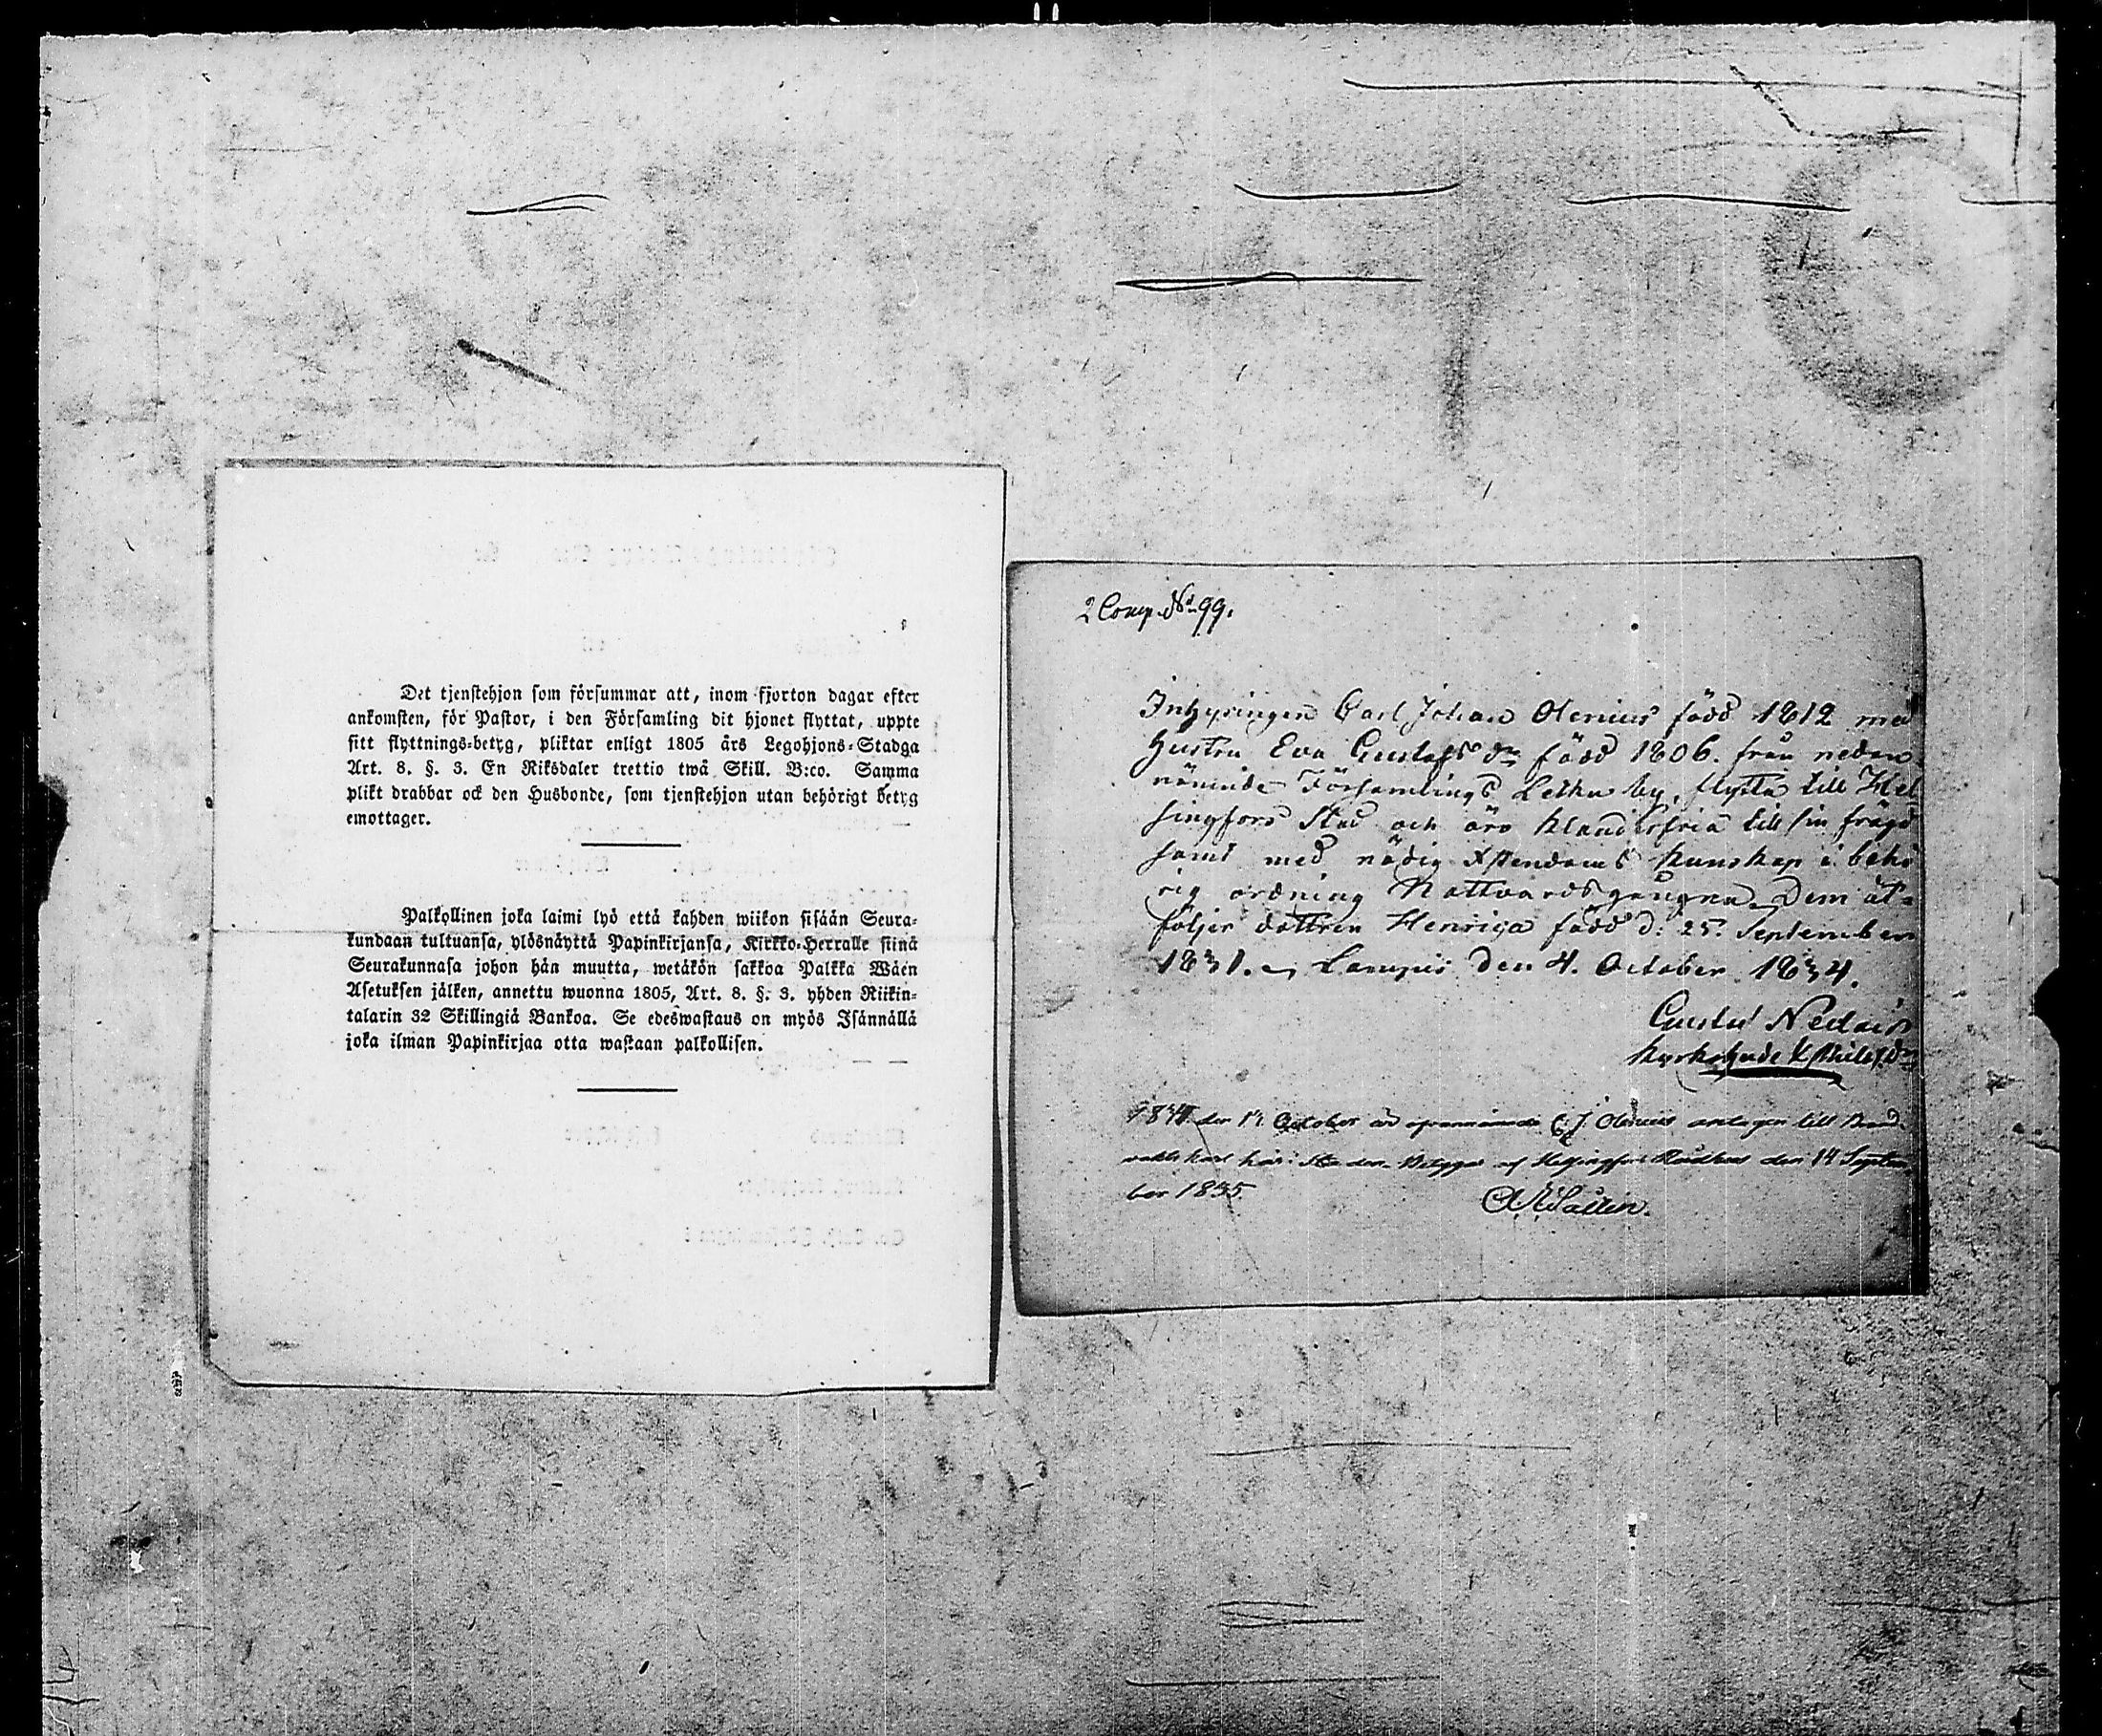 Det tjenstehjon som försummar att, inom fjorton dagar efter
ankomsten, för Pastor, i den Församling dit hjonet flyttat, uppte
sitt flyttnings-betyg, pliktar enligt 1805 års Legohjons-Stadga
Art. 8. §. 3. En Riksdaler trettio twå Skill. B:co. Samma
plikt drabbar ock den Husbonde, som tjenstehjon utan behörigt betyg
emottager.
Palkollinen joka laimi lyö että kahden wiikon sisään Seura-
kundaan tultuansa, ylösnäyttä Papinkirjansa, Kirkko-Herralle siinä
Seurakunnasa johon hän muutta, wetäkön sakkoa Palkka Wäen
Asetuksen jälken, annettu wuonna 1805, Art. 8. §. 3. yhden Riikin-
talarin 32 Skillingiä Bankoa. Se edeswastaus on myös Isännällä
joka ilman Papinkirjaa otta wastaan palkollisen.
2 Comp. No 99.
Inhysingen Carl Johan Olenius född 1812 med
hustru Eva Gustafsdr född 1806. från nedan
nämnde Församlings by, flytta till Hel
singfors Stad och äro klanderfria till sin frägd
samt med nödig Xstendoms kunskap i behö
rig ordning Nattvardsgångna. Dem åt-
följer dottren Henrica född d: 25. September
1831. Lampis den 4. October 1834.
Gustaf
1834 den 14 October är ofvannämnde C. J. Olenius antagen till Brand
vakts karl här i Staden. Betygas af Helsingfors Rådhus den 14 Septem
ber 1835